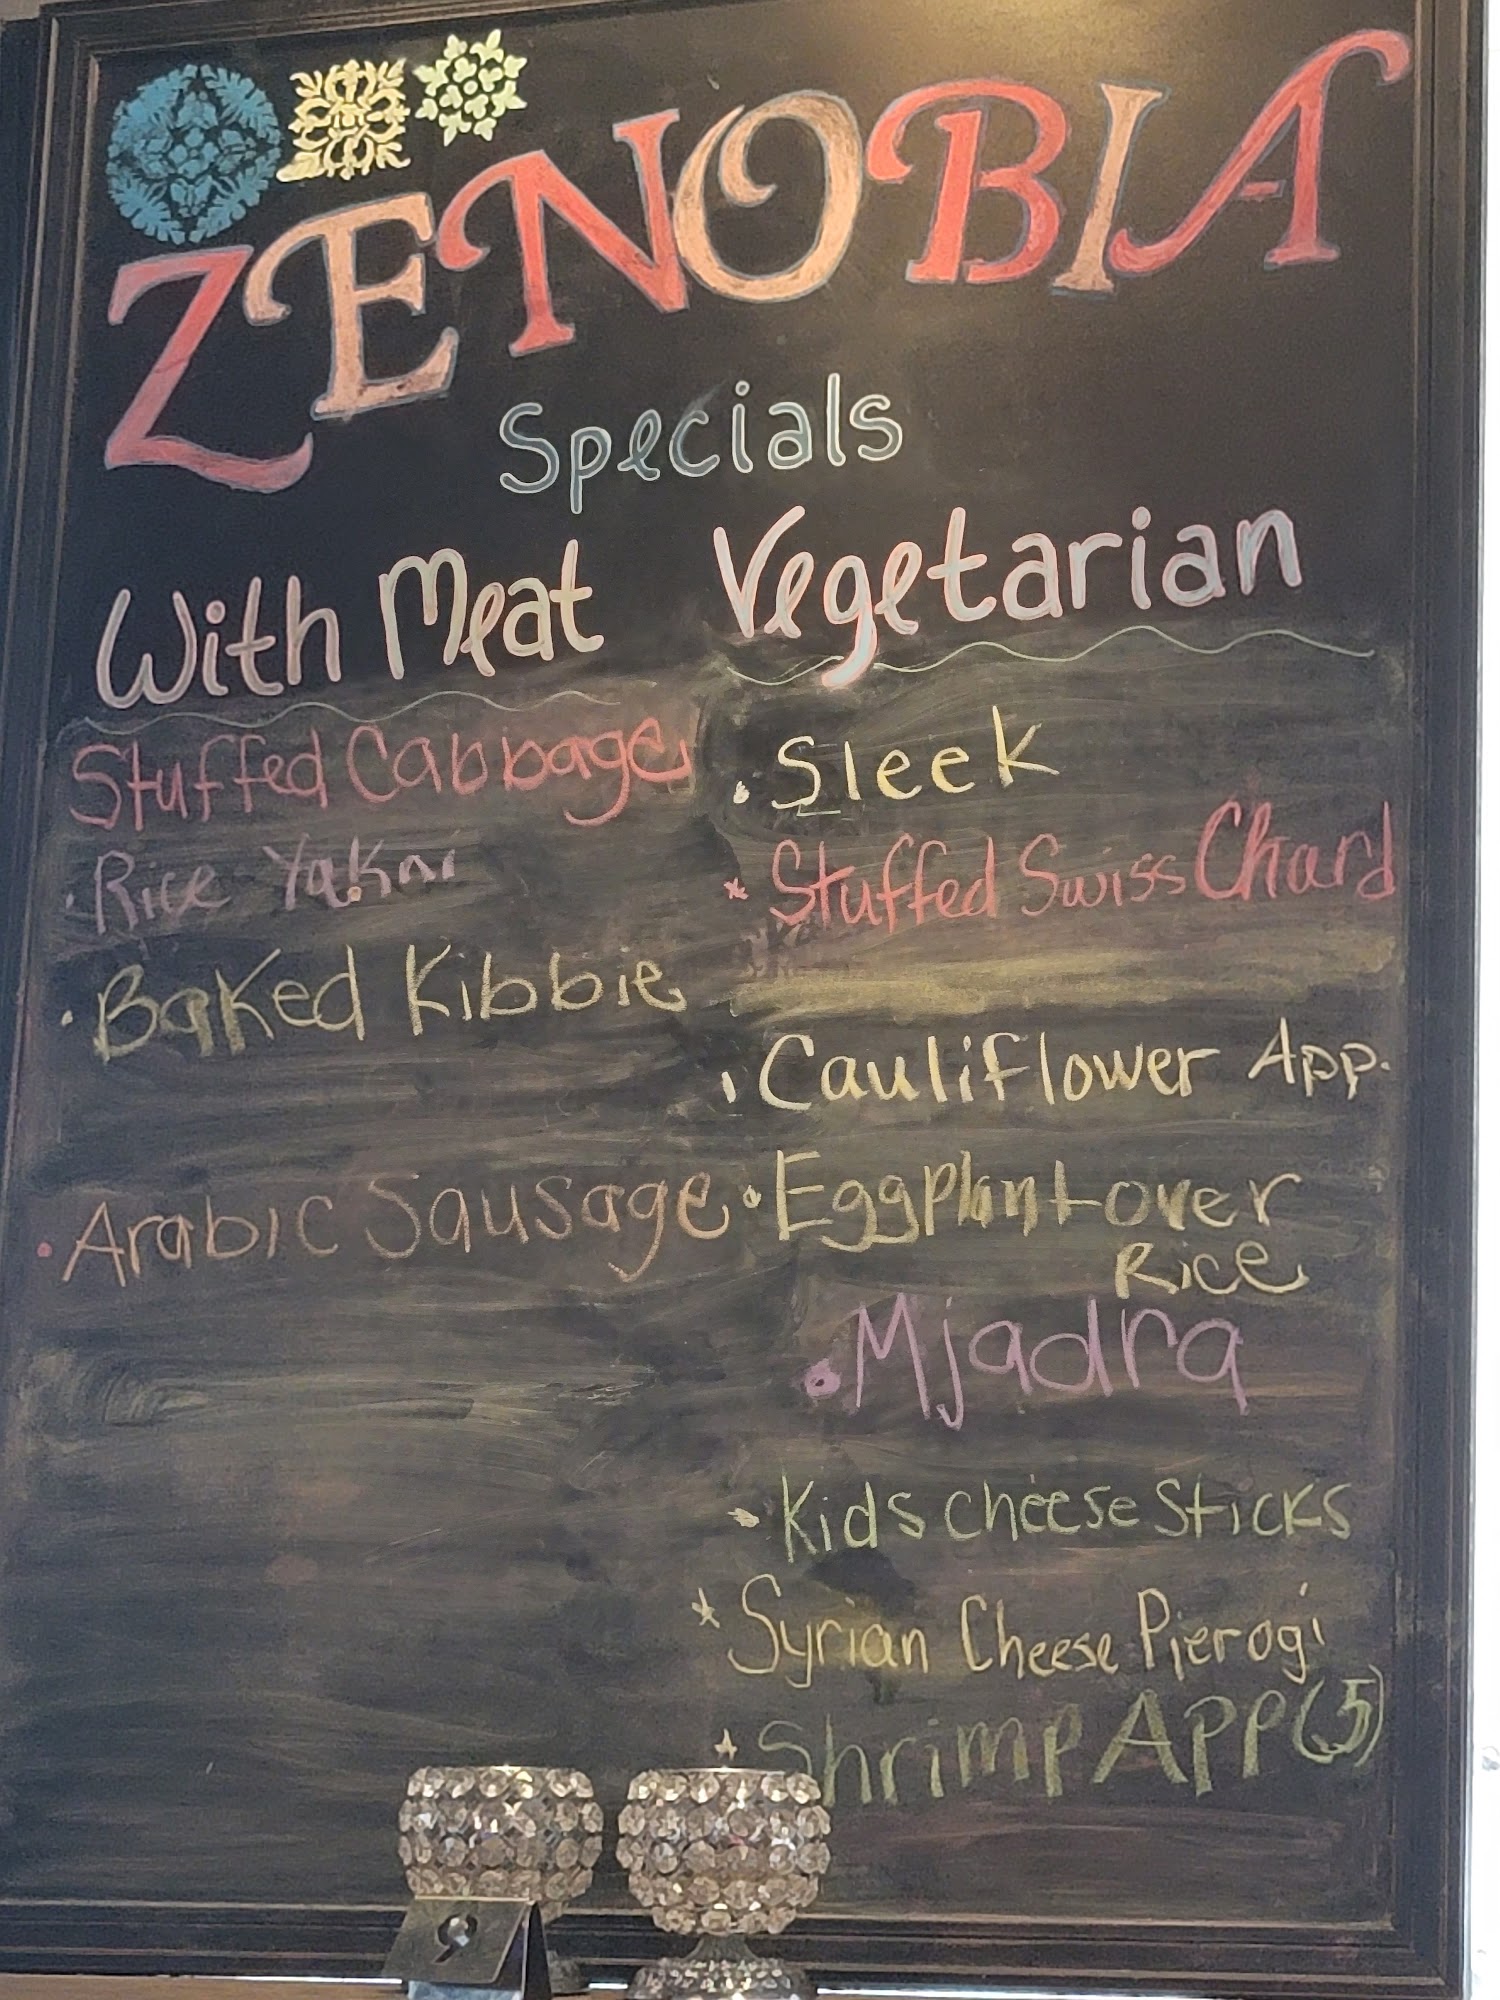 ZENOBIA
Specials
With Meat
Stuffed Cabbage
Rice Yakni
Baked Kibbie
Arabic Sausage
Vegetarian
Sleek
Stuffed Swiss Chard
Cauliflower App.
Eggplant over
Rice
Mjadra
Kids cheese Sticks
Syrian Cheese Pierogi
Shrimp APP (5)
9